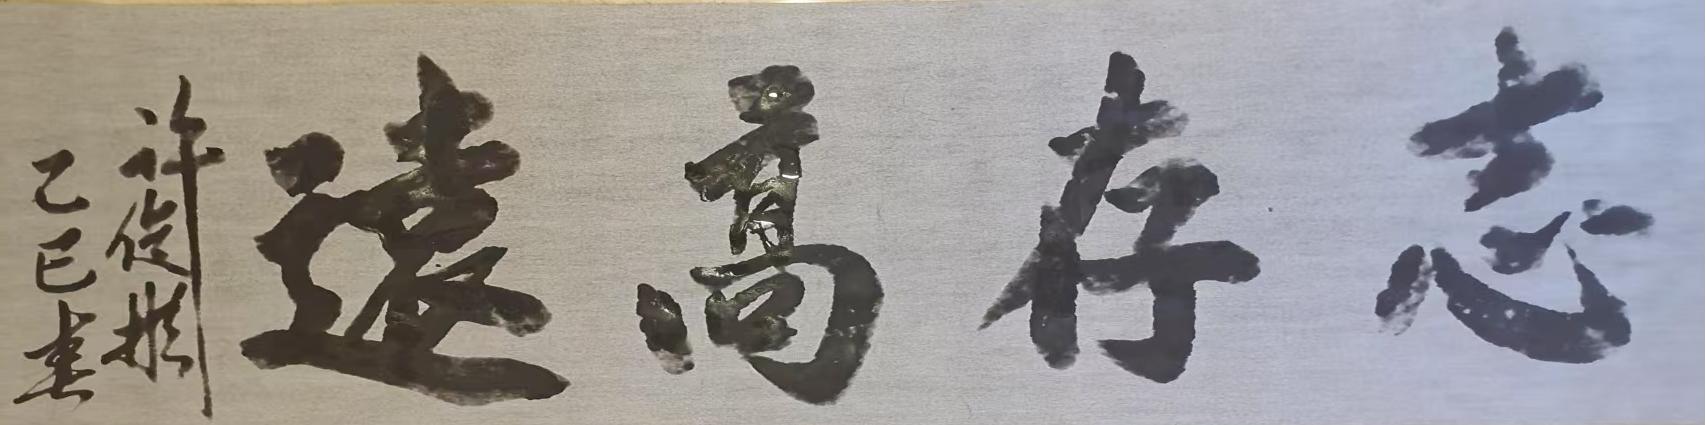 志存高遠
許
乙巳書